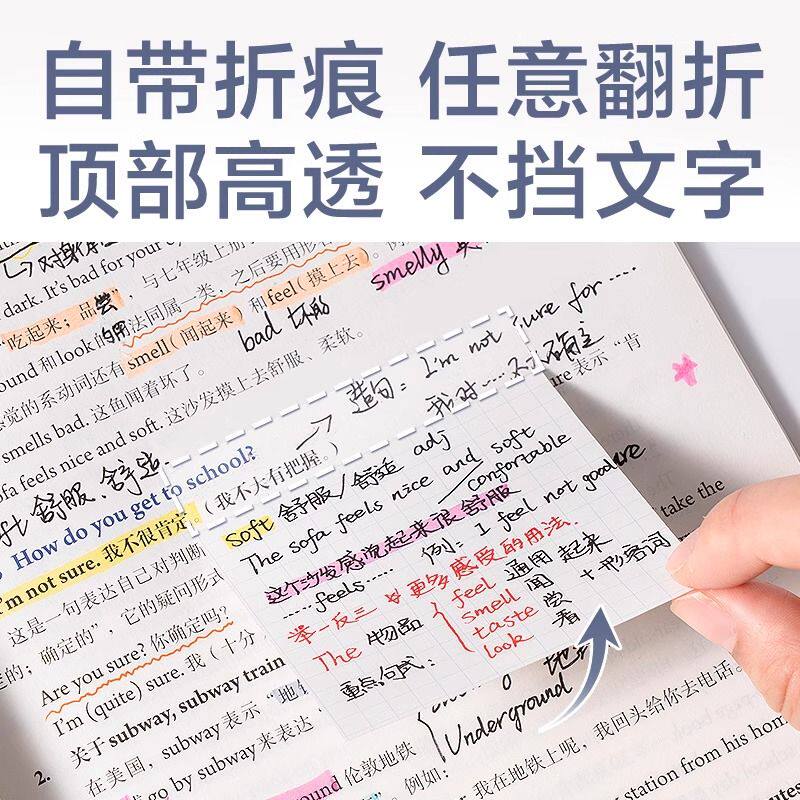 自带折痕 任意翻折
顶部高透 不挡文字
dark. It's bad for your
与七年级上册
smelly
"吃起来；品尝"
法同属一类，之后要用形容
ound 和 look 的用
smell（闻起来）和 feel（摸上去）。
bad 坏的
感觉的系动词还有
smells bad. 这鱼闻着坏了。
这沙发摸上去舒服、柔软。
ofa feels nice and soft.
舒服、舒适
→ 造句：I'm not sure for……
我对……不确定
sure 表示"肯
How do you get to school?
I'm not sure. 我不很肯定。（我不大有把握。）
soft 舒服/舒适 adj
The sofa feels nice and soft
comfortable
这个沙发感觉起来很舒服
……feels…… 例：I feel not good
举一反三 更多感受的用法.
The 物品 feel 通用 起来
smell 闻
taste 尝
look 看
+ 形容词
重点句式：
take the
这是一句表达自己对判断
定的；确定的"，它的疑问形式
Are you sure? 你确定吗？
I'm (quite) sure. 我（十分
关于 subway, subway train
在美国，subway 表示"地
或 go by subway 来表达
2.
Underground
ound 伦敦地铁
例如：
"我在地铁上呢，我回头给你去电话。
station from his home